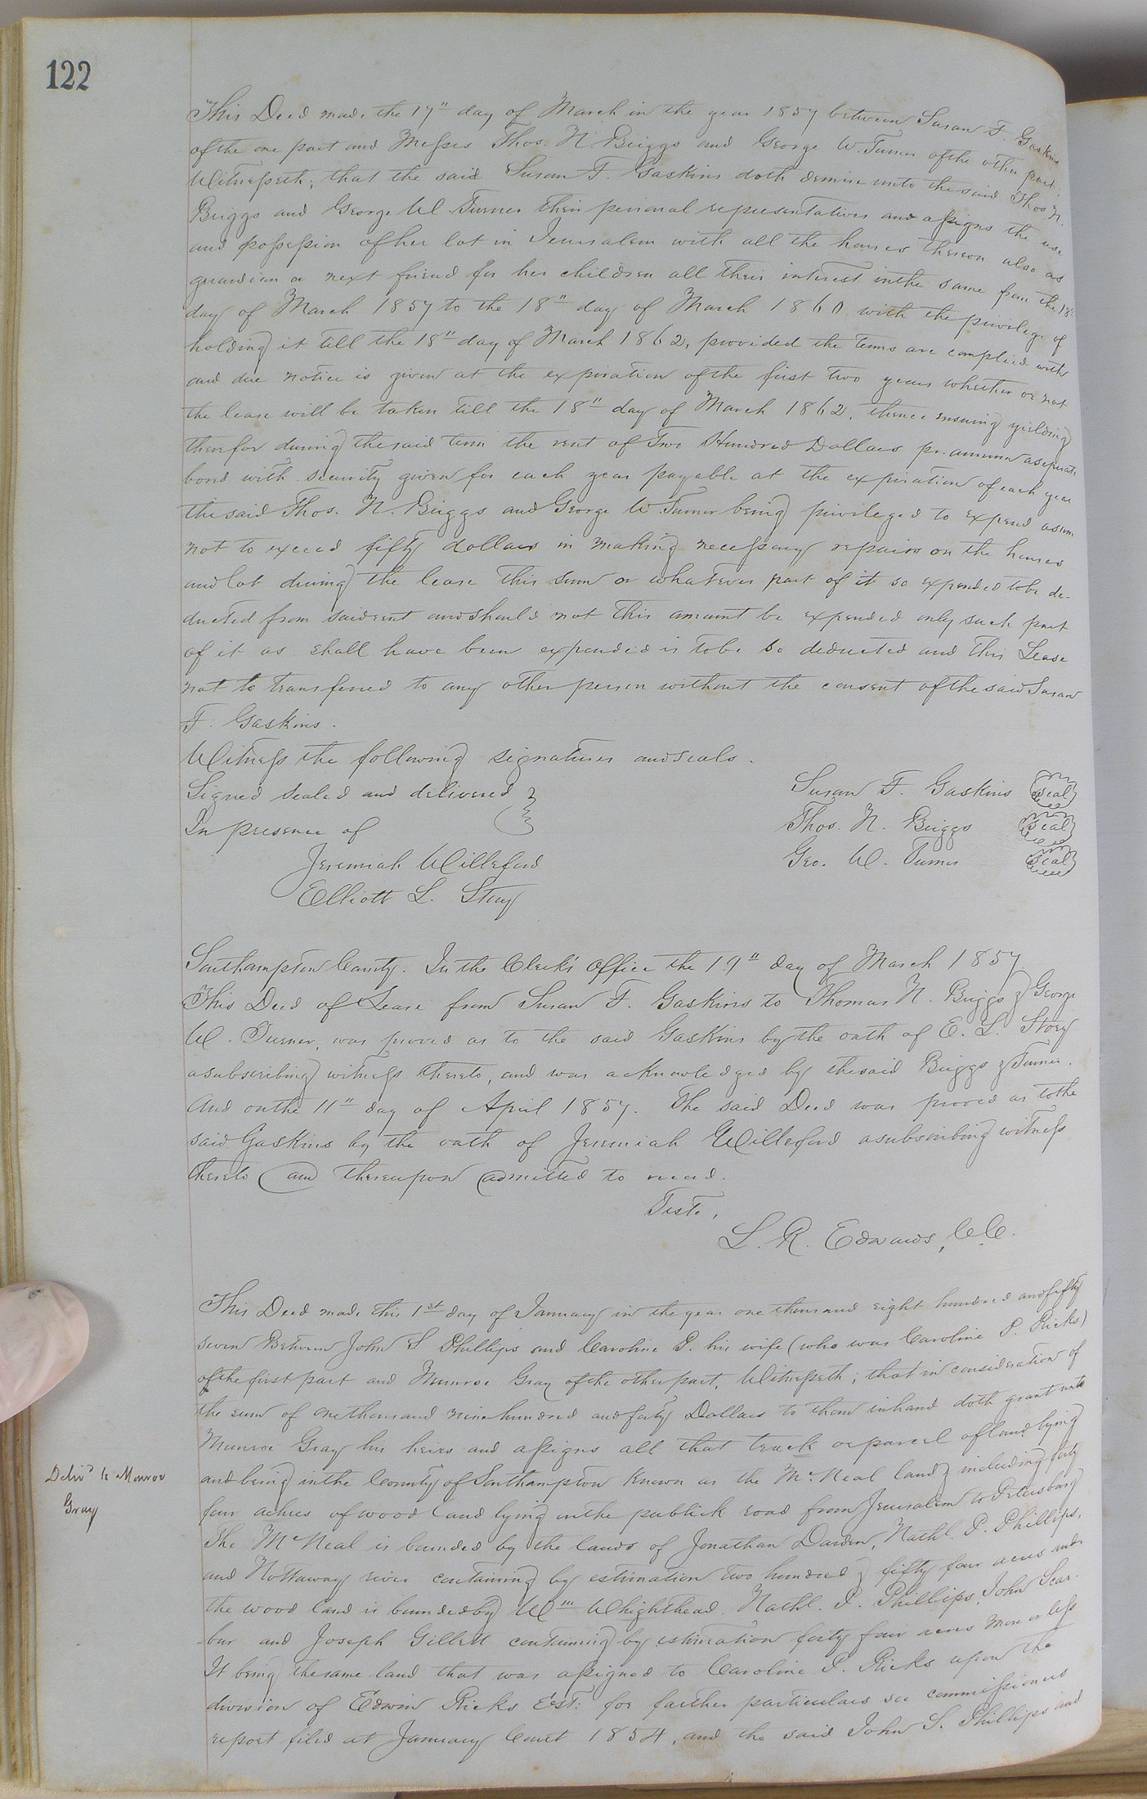 122
This Deed made the 17" day of March in the year 1857 between Susan F. Gaskins
of the one part and Messrs Thos. N. Briggs and George W. Turner of the other part.
Witnesseth, that the said Susan F. Gaskins doth demise unto the said Thos N.
Briggs and George W Turner their personal representatives and assigns the use
and possession of her lot in Jerusalem with all the houses thereon also as
guardian or next friend for her children all their interest in the same from the 18"
day of March 1857 to the 18" day of March 1860 with the privilege of
holding it till the 18" day of March 1862, provided the terms are complied with
and due notice is given at the expiration of the first two years whether or not
the lease will be taken till the 18" day of March 1862, thence ensuing yielding
therefor during the said term the rent of Two Hundred Dollars pr. annum a separate
bond with security given for each year payable at the expiration of each year
the said Thos. N. Briggs and George W Turner being privileged to expend a sum
not to exceed fifty dollars in making necessary repairs on the houses
and lot during the lease this sum or whatever part of it so expended to be de-
ducted from said rent and should not this amount be expended only such part
of it as shall have been expended is to be so deducted and this Lease
not to transferred to any other person without the consent of the said Susan
F. Gaskins.
Witness the following signatures and seals.
Signed sealed and delivered
In presence of
Jeremiah Willeford
Elliott L. Story
Susan F. Gaskins seal
Thos. N. Briggs seal
Geo. W. Turner seal
Southampton County. In the Clerk's Office the 19" day of March 1857
This Deed of Lease from Susan F. Gaskins to Thomas N. Briggs & George
W. Turner, was proved as to the said Gaskins by the oath of E. L. Story
a subscribing witness thereto, and was acknowledged by the said Briggs & Turner.
And on the 11" day of April 1857. The said Deed was proved as to the
said Gaskins by the oath of Jeremiah Willeford a subscribing witness
thereto and thereupon admitted to record.
Teste,
L. R. Edwards, C.C.
This Deed made this 1st day of January in the year one thousand eight hundred and fifty
seven Between John S Phillips and Caroline P. his wife (who was Caroline P. Ricks)
of the first part and Munroe Gray of the other part, Witnesseth; that in consideration of
the sum of one thousand nine hundred and forty Dollars to them in hand doth grant unto
Munroe Gray his heirs and assigns all that track or parcel of land lying
and being in the County of Southampton known as the McNeal land, including forty
four achres of wood land lying on the publick road from Jerusalem to Petersburg
The McNeal is bounded by the lands of Jonathan Darden, Nathl. P. Phillips,
and Nottaway river containing by estimation two hundred & fifty four acres and
the wood land is bounded by Wm Whighthead Nathl. P. Phillips, John Scar-
bur and Joseph Gillett containing by estimation forty four acres more or less
It being the same land that was assigned to Caroline P. Ricks upon the
division of Edwin Ricks Est: for farther particulars see commissioners
report filed at January Court 1854, and the said John S. Phillips and
Delivd to Munroe
Gray